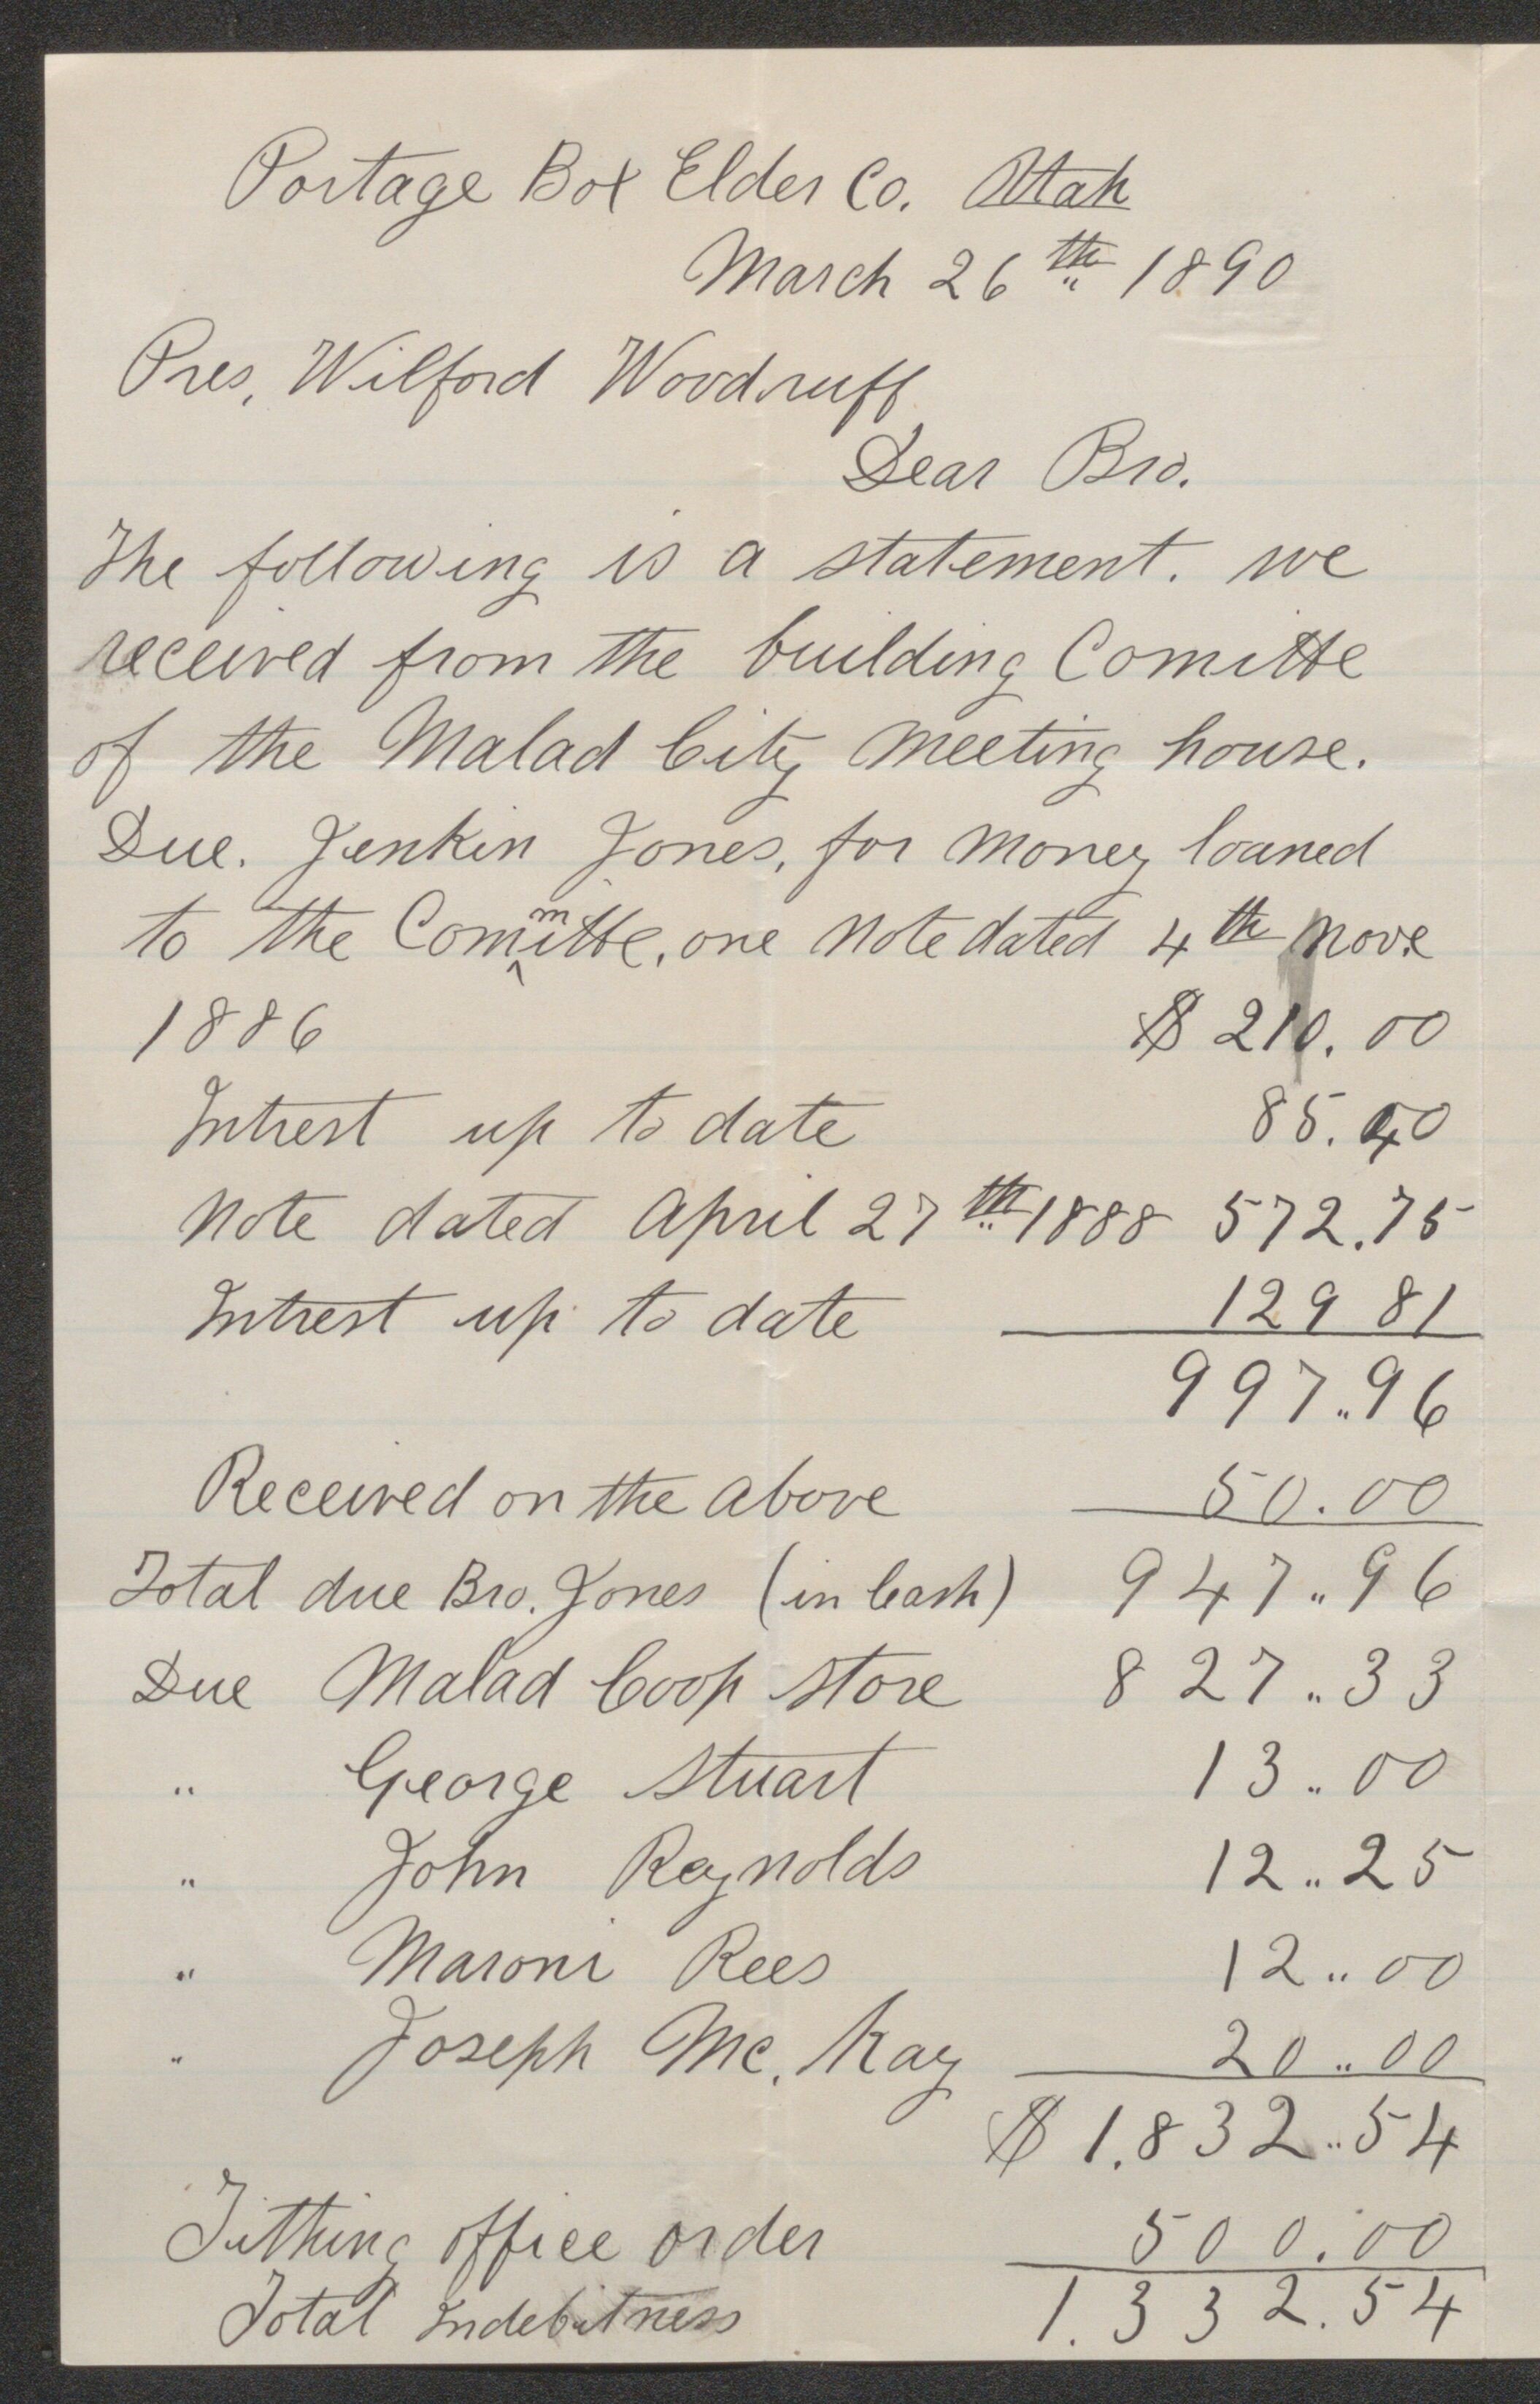 Portage Box Elder Co. Utah
March 26th 1890
Pres, Wilford Woodruff
Dear Bro.
The following is a statement. we
received from the building Comitte
of the Malad City Meeting house.
Due. Jenkin Jones, for money loaned
to the Committe, one Note dated 4th Nov.e
1886 $210.00
Intrest up to date 85.40
Note dated April 27th 1888 572.75
Intrest up to date 129 81
997.96
Received on the above 50.00
Total due Bro. Jones (in Cash) 947.96
Due Malad Coop Store 827.33
" George Stuart 13.00
" John Reynolds 12.25
" Maroni Rees 12.00
" Joseph Mc. Kay 20.00
$1.832.54
Tithing office order 500.00
Total Indebitness 1.332.54